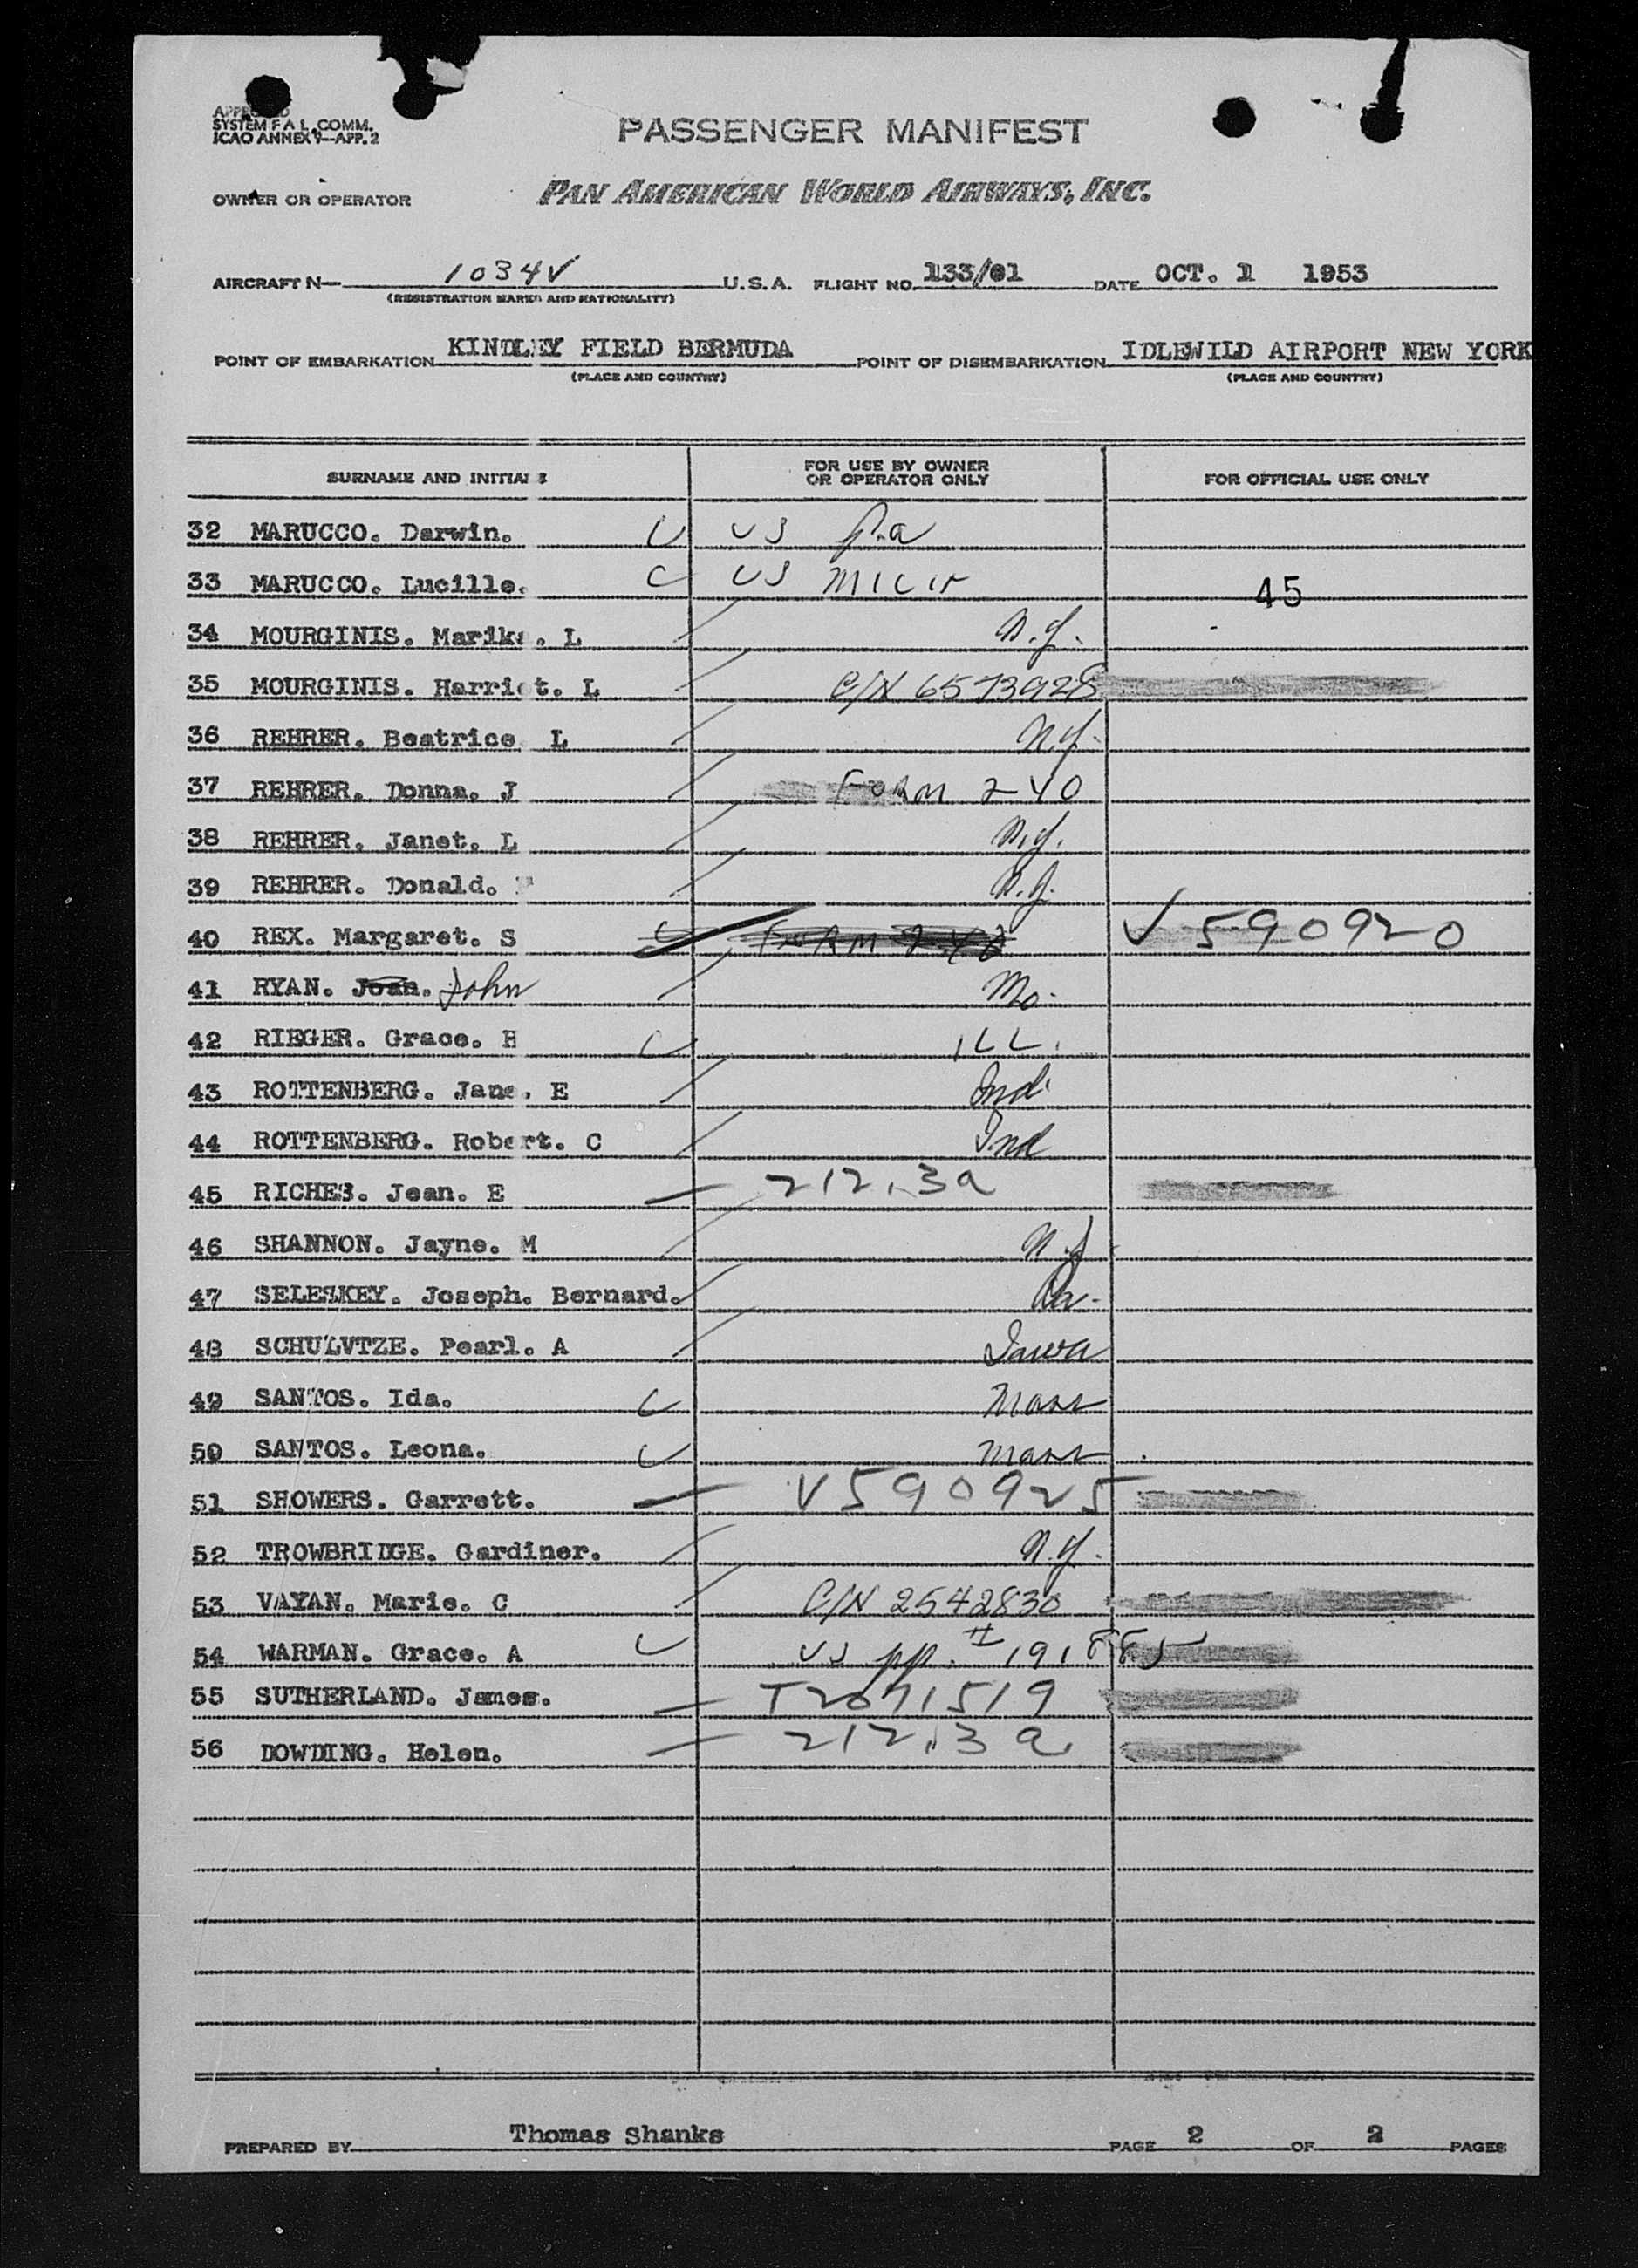 APPROVED
SYSTEM F A L COMM.
ICAO ANNEX 9—APP. 2
PASSENGER MANIFEST
OWNER OR OPERATOR PAN AMERICAN WORLD AIRWAYS, INC.
AIRCRAFT N— 1034V U.S.A. FLIGHT NO. 133/01 DATE OCT. 1 1953
(REGISTRATION MARKS AND NATIONALITY)
POINT OF EMBARKATION KINDLEY FIELD BERMUDA POINT OF DISEMBARKATION IDLEWILD AIRPORT NEW YORK
(PLACE AND COUNTRY) (PLACE AND COUNTRY)
SURNAME AND INITIALS FOR USE BY OWNER OR OPERATOR ONLY FOR OFFICIAL USE ONLY
32 MARUCCO. Darwin. US Pa
33 MARUCCO. Lucille. US MICH 45
34 MOURGINIS. Marika. L N.Y.
35 MOURGINIS. Harriet. L C/N 6573928
36 REHRER. Beatrice L N.Y.
37 REHRER. Donna. J FORM 240
38 REHRER. Janet. L N.Y.
39 REHRER. Donald. N.Y.
40 REX. Margaret. S FORM 240 V 590920
41 RYAN. Joan. John Mo.
42 RIEGER. Grace. H ILL.
43 ROTTENBERG. Jane. E Ind.
44 ROTTENBERG. Robert. C Ind
45 RICHES. Jean. E 212.3a
46 SHANNON. Jayne. M N.J.
47 SELESKEY. Joseph. Bernard. Pa.
48 SCHULVTZE. Pearl. A Iowa
49 SANTOS. Ida. Mass
50 SANTOS. Leona. Mass
51 SHOWERS. Garrett. V590925
52 TROWBRIDGE. Gardiner. N.Y.
53 VAYAN. Marie. C C/N 2542830
54 WARMAN. Grace. A US pp. # 191885
55 SUTHERLAND. James. T2071519
56 DOWDING. Helen. 212.3a
PREPARED BY Thomas Shanks PAGE 2 OF 2 PAGES